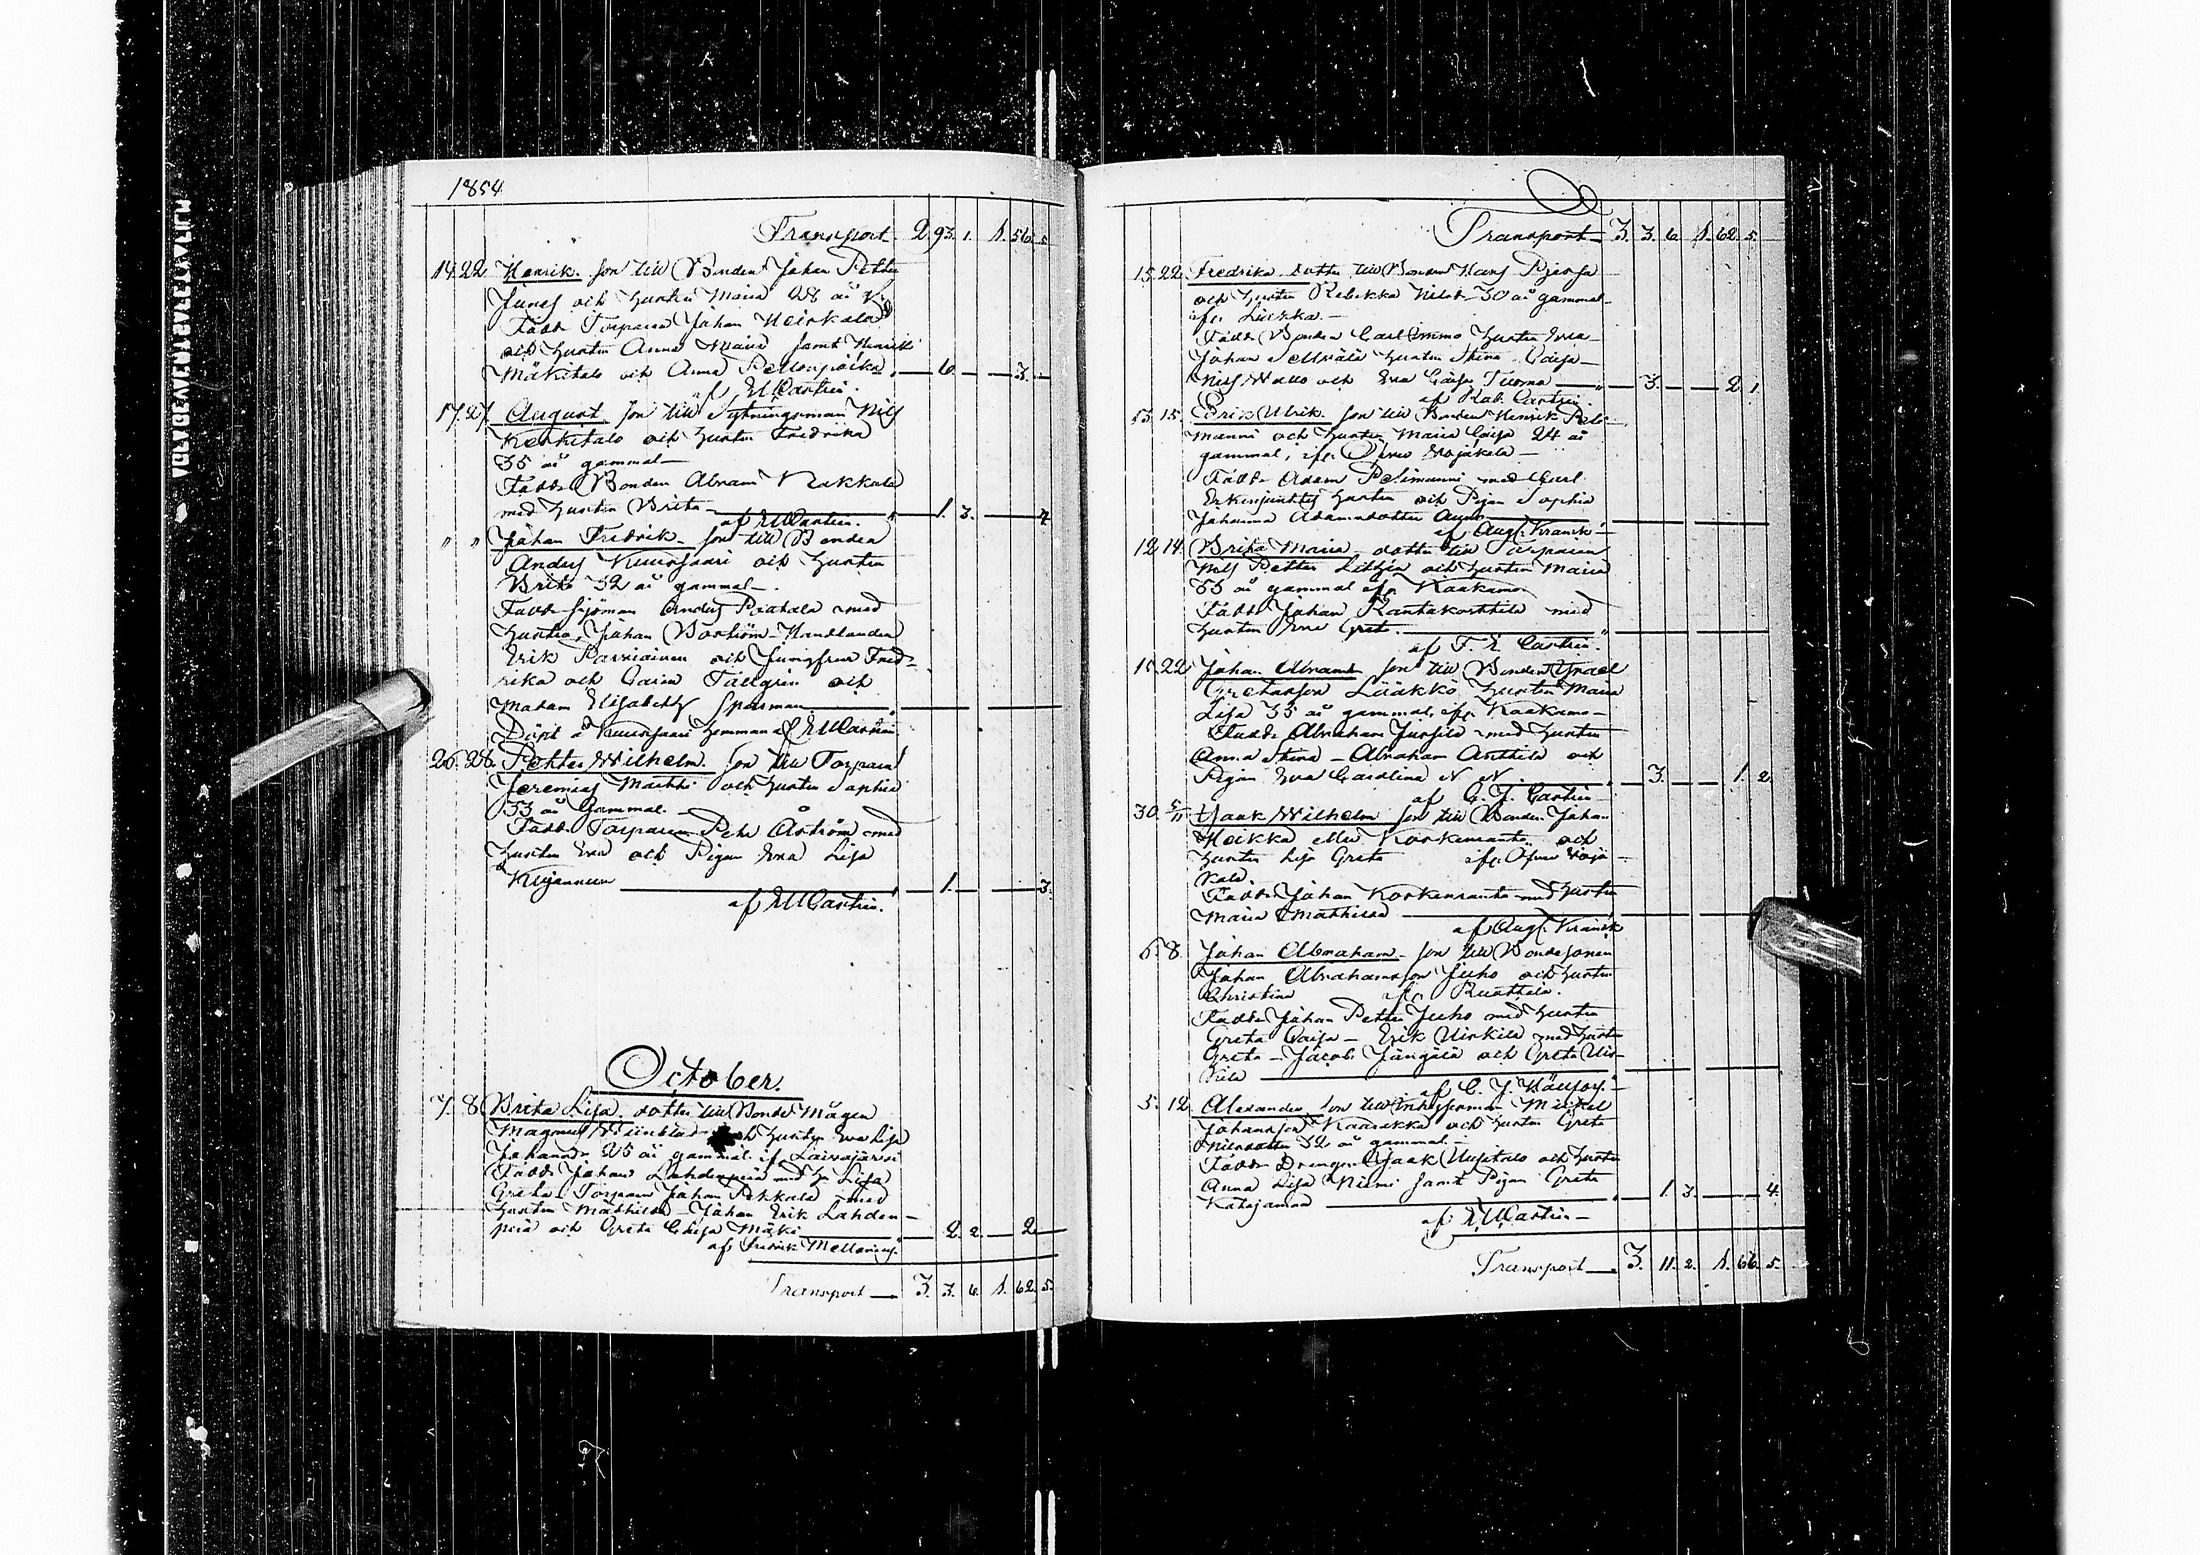 1854
Transport 2. 93. 1. 1. 56. 5.
14. 22. Henrik. son till Bonden Johan Petter
och hustru Maria 28 år
Fadd. Torparen Johan Heikkala
och hustru Anna Maria samt Henrik
Mäkitalo och Anna 6. 3.
af EMCastrén.
17. 27. August son till Sytningsman Nils
Kerkitalo och hustru Fredrika
35 år gammal
Fadd. Bonden Abram Nakkala
med hustru Brita 1. 3. 4
af EMCastrén.
" " Johan Fredrik son till Bonden
Anders och hustru
Brita 32 år gammal
Fadd. Sjöman Anders Raahala med
hustru, Johan Boström Handlanden
Erik Parviainen och Jungfrur Fred-
rika och Carin Tällgrén och
Madam Elisabeth Sparman
Döpt å hemman af EMCastrén
26. 28. Petter Wilhelm. son till Torparen
Jeremias Martti och hustru Sophia
33 år gammal.
Fadd. Torparen Petr Åström med
hustru Eva och Pigan Eva Lisa
1. 3.
af EMCastrén.
October.
7. 8. Brita Lisa. dotter till Bonde Mågen
Magnus Wiinblad och hustru Eva Lisa
Johansdr 25 år gammal. ifr. Laivajärvi
Fadd. Johan Lahdenperä med h. Lisa
Greta Torparen Johan Pekkala med
hustru Mathilda Johan Erik Lahden-
perä och Greta Caisa Mäki 2. 2. 2
af Fredrik Mellarius.
Transport 3. 3. 6. 1. 62. 5.
Transport 3. 3. 6. 1. 62. 5.
15. 22. Fredrika dotter till Bonden Hans
och hustru Rebekka Nilsd. 30 år gammal
ifr.
Fadd. Bonden Carl Ommo hustru Eva
Johan hustru Stina Caisa
Nils Wallo och Eva Caisa Tuoma 3. 2. 1.
af Rob. Castrén.
13. 15. Erik Ulrik. son till Bonden Henrik Peli-
manni och hustru Maria Caisa 24 år
gammal, ifr. Öfre Wojakala
Fadd. Adam Pelimanni med Carl
Erkinjuntti hustru och Pigan Sophia
Johanna Adamsdotter
af Aug. Kranck
12. 14. Brita Maria dotter till Torparen
Nils Petter och hustru Maria
33 år gammal ifr. Kaakamo.
Fadd. Johan Rantakorttila med
hustru Eva Greta.
af F. E Castrén.
15. 22. Johan Abram son till Bonden
Lääkkö hustru Maria
Lisa 33 år gammal, ifr. Kaakamo
Fadd. Abraham med hustru
Anna Stina Abraham Anttila och
Pigan Eva Carolina N. N. 3. 1. 2
af C. J. Castrén
30. 5/11 Isaak Wilhelm son till Bonden Johan
Heikka eller Korkeranta och
hustru Lisa Greta ifr. Öfre Woja-
kala.
Fadd. Johan Korkeranta med hustru
Maria Mathilda
af Aug. Kranck
6. 8. Johan Abraham son till Bondesonen
Johan Abrahamsson Juho och hustru
Christina ifr. Ruottala.
Fadd. Johan Petter Juho med hustru
Greta Caisa Erik med hustru
Greta Jacob och Greta
af C. J.
5. 12. Alexander son till Inhysesman Mickel
Johansson och hustru Greta
Nilsdotter 32 år gammal.
Fadd. Drengen Isaak Uusitalo och hustru
Anna Lisa Niemi samt Pigan Greta
Katajamaa 1. 3. 4.
af EMCastrén
Transport 3. 11. 2. 1. 66. 5.